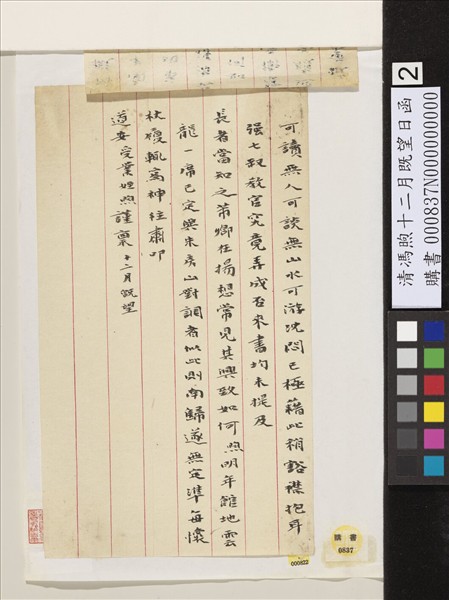 可讀無人可談無山水可游沈悶已極藉此稍豁襟抱耳
强七叔教官究竟弄成否來書均未提及
長者當知之芾卿在揚想常見其興致如何照明年離地雲
龍一席已定與朱房山對調者似此則南歸遂無定準每懷
杖履輒高神往肅叩
道安受業姪煦謹稟十二月既望
清馮煦十二月既望日函
購書 000837N000000000
2
購書
0837
000822